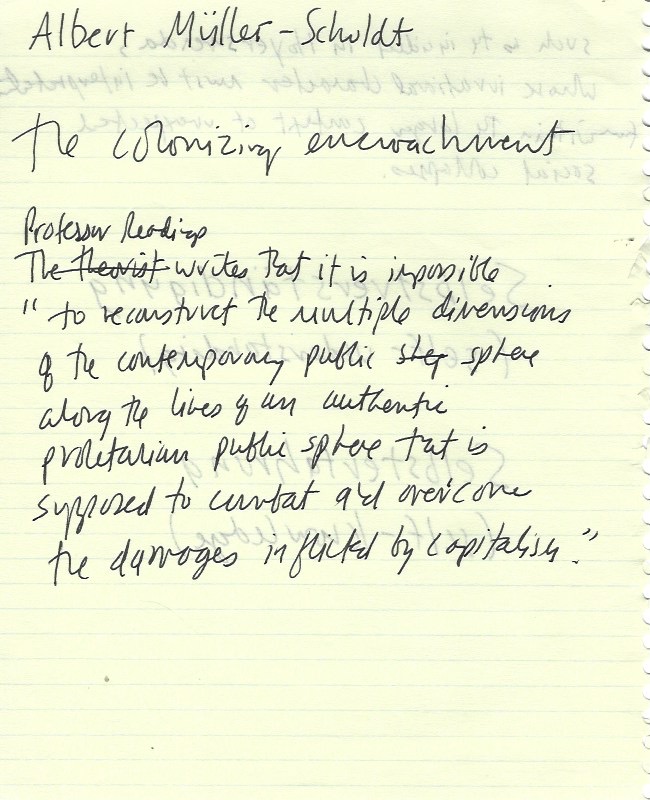 Albert Müller-Scholdt
The colonizing encroachment
Professor Readings
The theorist writes that it is impossible
"to reconstruct the multiple dimensions
of the contemporary public step sphere
along the lines of an authentic
proletarian public sphere that is
supposed to combat and overcome
the damages inflicted by capitalism."